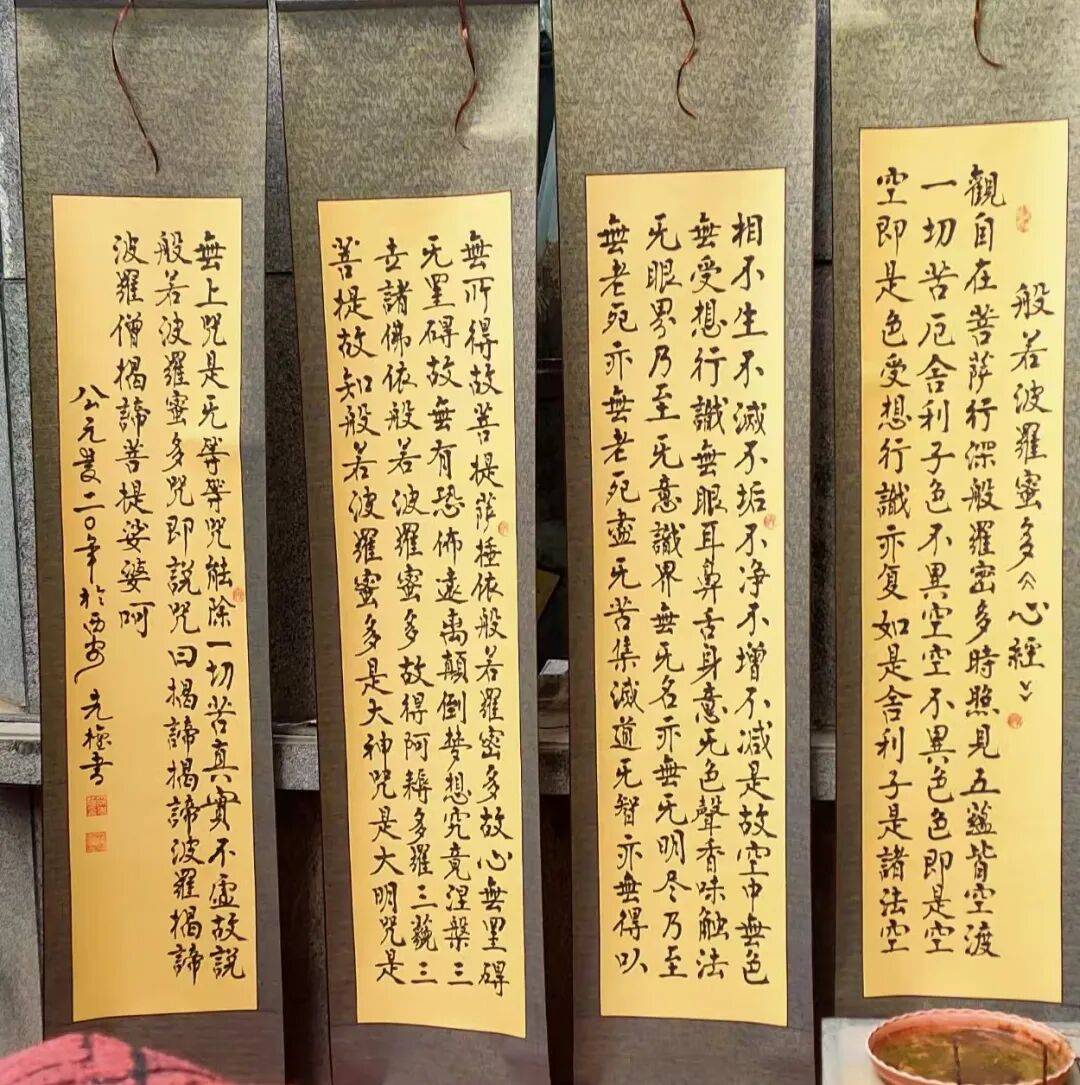 般若波羅蜜多《心經》
觀自在菩萨行深般羅密多時照見五蘊皆空渡
一切苦厄舍利子色不異空空不異色色即是空
空即是色受想行識亦复如是舍利子是諸法空
相不生不滅不垢不净不增不减是故空中無色
無受想行識無眼耳鼻舌身意无色聲香味触法
无眼界乃至无意識界無无名亦無无明尽乃至
無老死亦無老死盡无苦集滅道无智亦無得以
無所得故菩提萨埵依般若羅密多故心無罣碍
无罣碍故無有恐佈遠离顛倒梦想究竟涅槃三
世諸佛依般若波羅蜜多故得阿耨多羅三藐三
菩提故知般若波羅蜜多是大神咒是大明咒是
無上咒是无等等咒能除一切苦真實不虚故說
般若波羅蜜多咒即說咒曰揭諦揭諦波羅揭諦
波羅僧揭諦菩提娑婆呵
公元二0年於西安 書